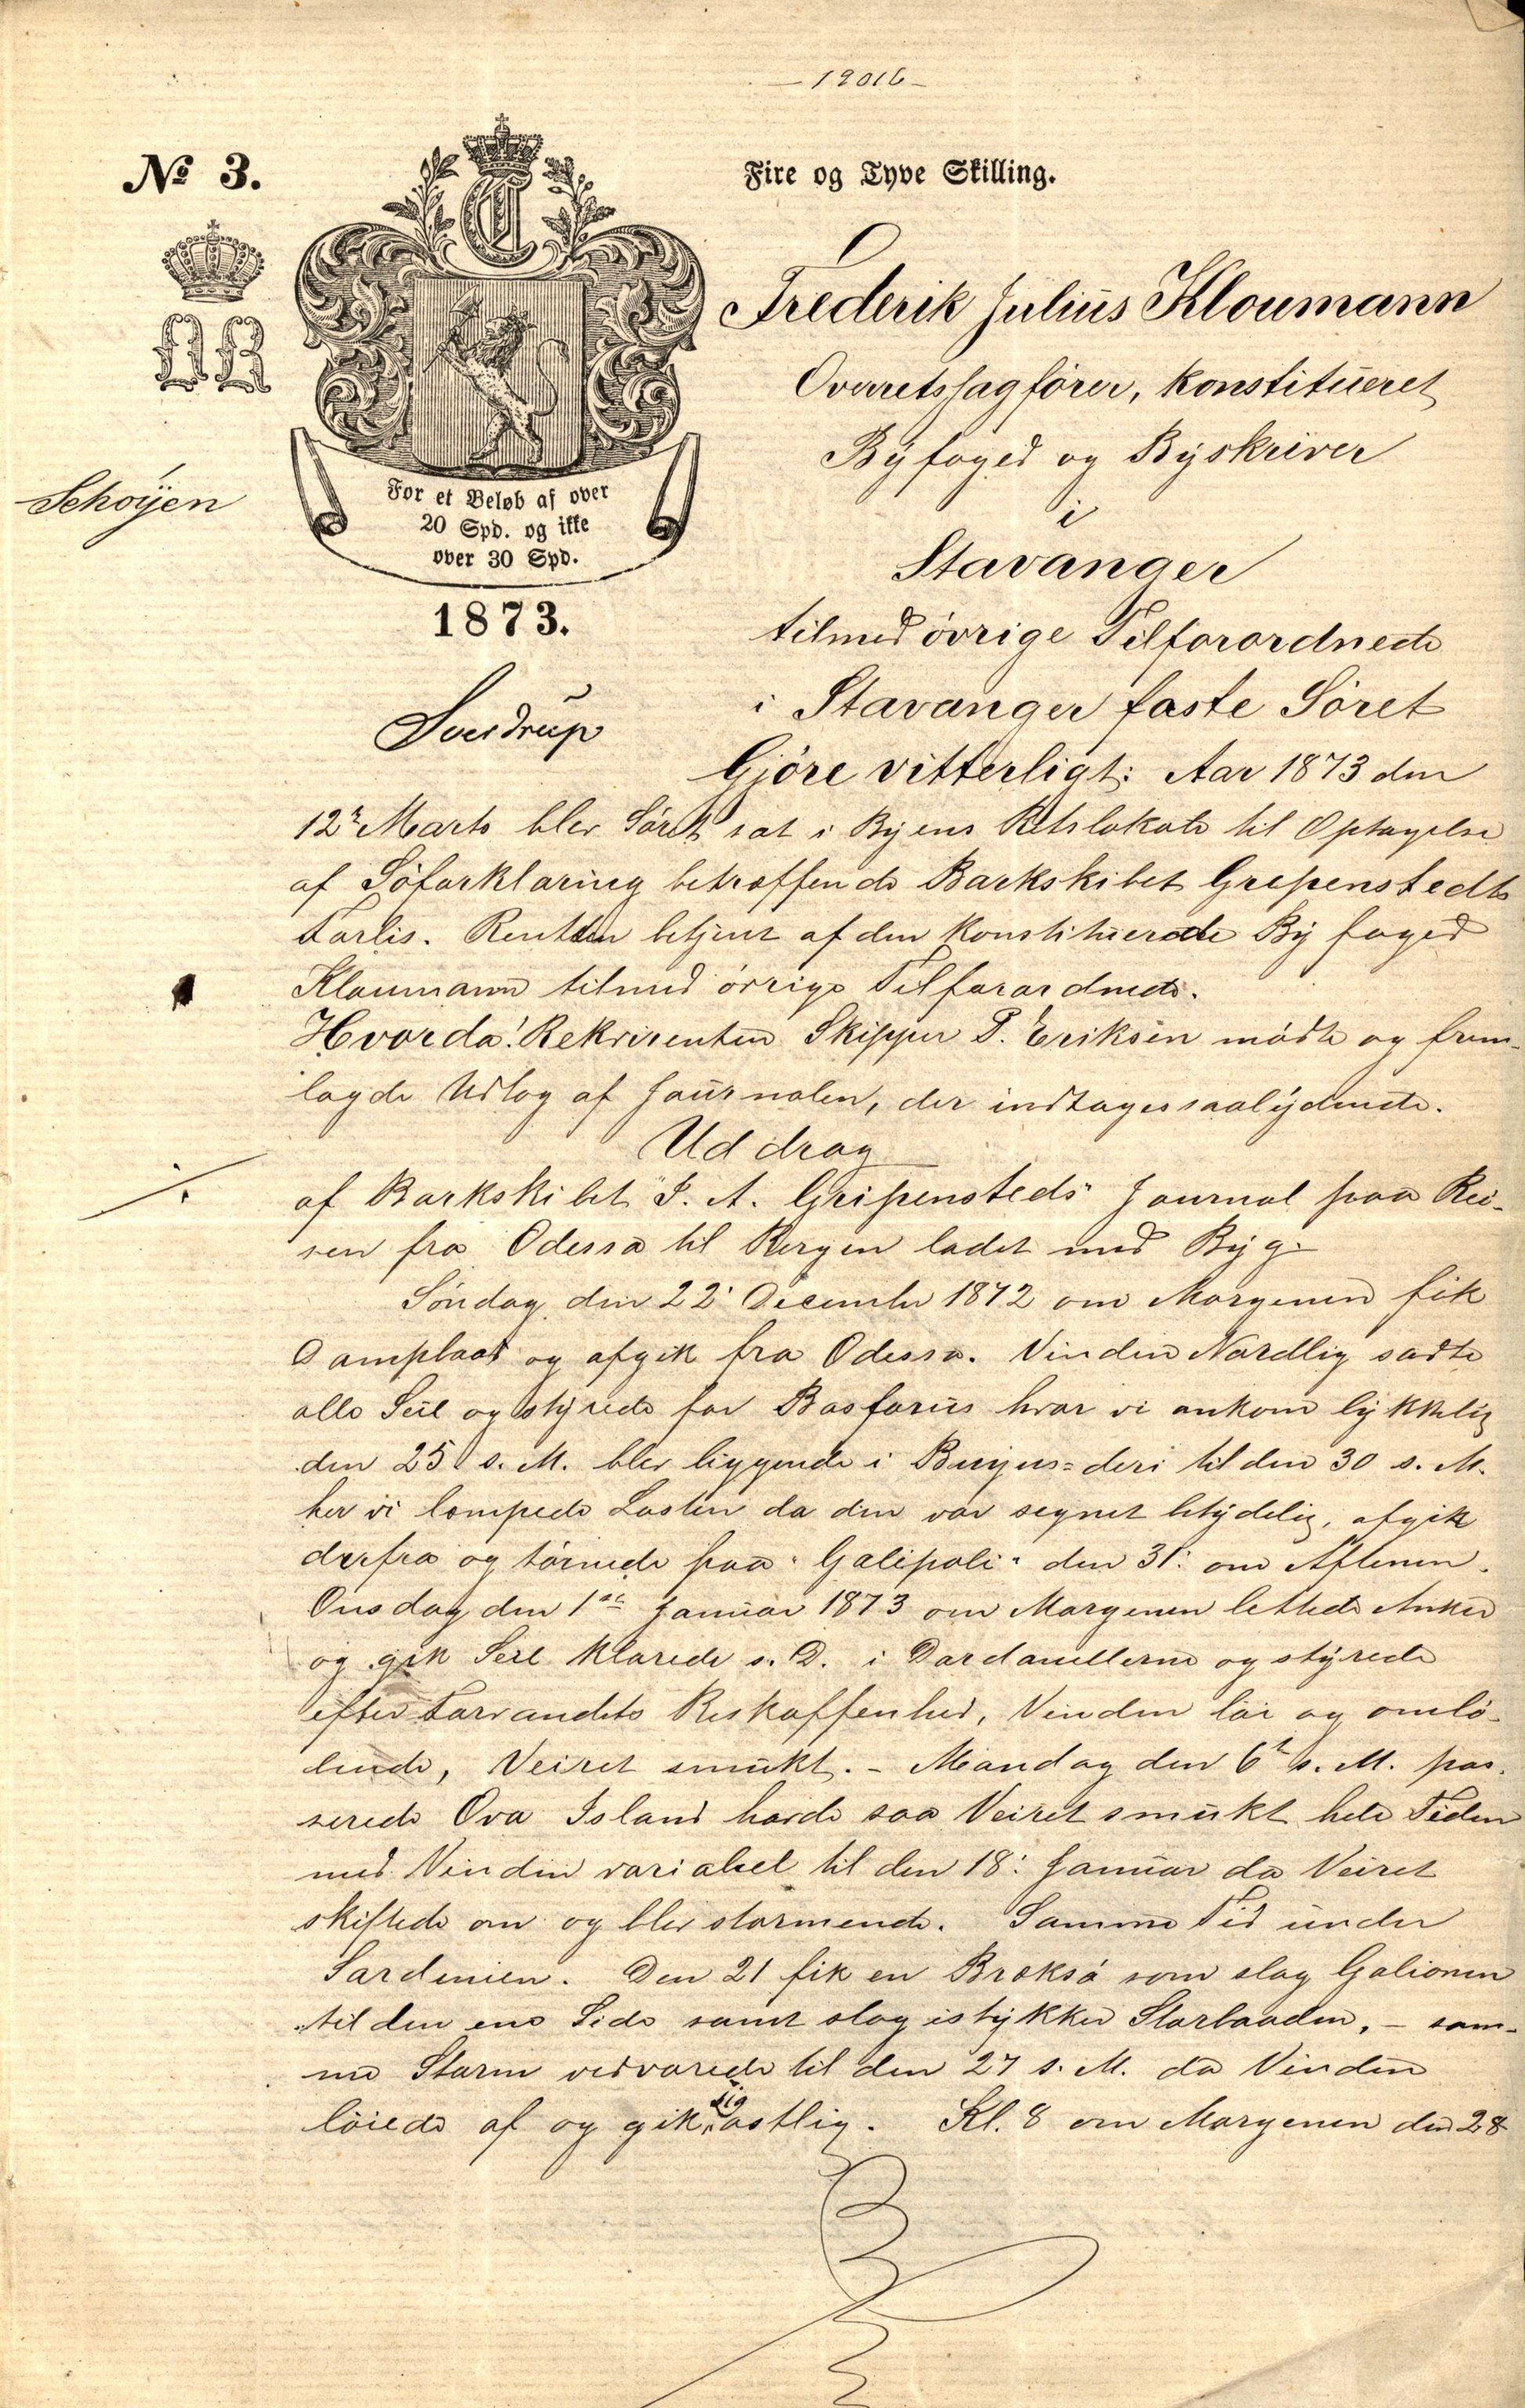 - 12016 -
No 3.
Fire og Tyve Skilling.
Frederik Julius Kloumann
Overretssagfører, konstitueret
Byfoged og Byskriver
i
Stavanger
tilmed øvrige Tilforordnede
i Stavanger faste Søret
Gjøre vitterligt: Aar 1873 den
Schøyen
For et Beløb af over
20 Spd. og ikke
over 30 Spd.
1873.
Sverdrup
12te Marts blev Søret sat i Byens Retslokale til Optagelse
af Søforklaring betræffende Barkskibet Grepenstedts
Forlis. Retten betjent af den konstituerede Byfoged
Kloumann tilmed øvrige Tilforordnede.
Hvorda! Rekvirenten Skipper P. Eriksen mødte og frem-
lagde Udtog af Journalen, der indtages saalydende.
Uddrag
af Barkskibet "J. A. Gripensteds" Journal paa Rei-
sen fra Odessa til Bergen ladet med Byg.
Søndag den 22' December 1872 om Morgenen fik
Dampbaad og afgik fra Odessa. Vinden Nordlig sadte
alle Seil og styrede for Bosforus hvor vi ankom lykkelig
den 25 s. M. blev liggende i Bujus=deri til den 30 s. M.
her vi lempede Lasten da den var segnet betydelig, afgik
derfra og tørnede paa "Galipoli" den 31: om Aftenen.
Onsdag den 1ste Januar 1873 om Morgenen lettede Anker
og gik Seil klarede s. D. i Dardanellerne og styrede
efter Farvandets Beskaffenhed, Vinden løi og omlø-
bende, Veiret smukt. - Mandag den 6te s. M. pas-
serede Ovo Island havde saa Veiret smukt hele Tiden
med Vinden variabel til den 18: Januar da Veiret
skiftede om og blev stormende. Samme Tid under
Sardinien. Den 21 fik en Braksø som slog Galionen
til den ene Side samt slog istykker Storbaaden, - sam-
me Storm vedvarede til den 27 s. M. da Vinden
løiede af og gik sig østlig. Kl. 8 om Morgenen den 28